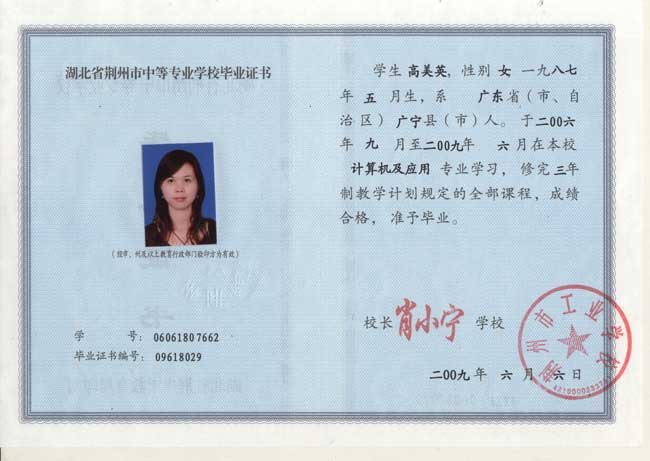 湖北省荆州市中等专业学校毕业证书
(经市、州及以上教育行政部门验印方为有效)
学 号: 06061807662
毕业证书编号: 09618029
学生 高美英, 性别 女 一九八七
年 五 月生, 系 广东省(市、自
治区) 广宁县(市)人。于二00六
年 九 月至二00九年 六月在本校
计算机及应用 专业学习, 修完三年
制教学计划规定的全部课程, 成绩
合格, 准予毕业。
校长 肖小宁 学校
荆州市工业学校
二00九年 六 月 六日